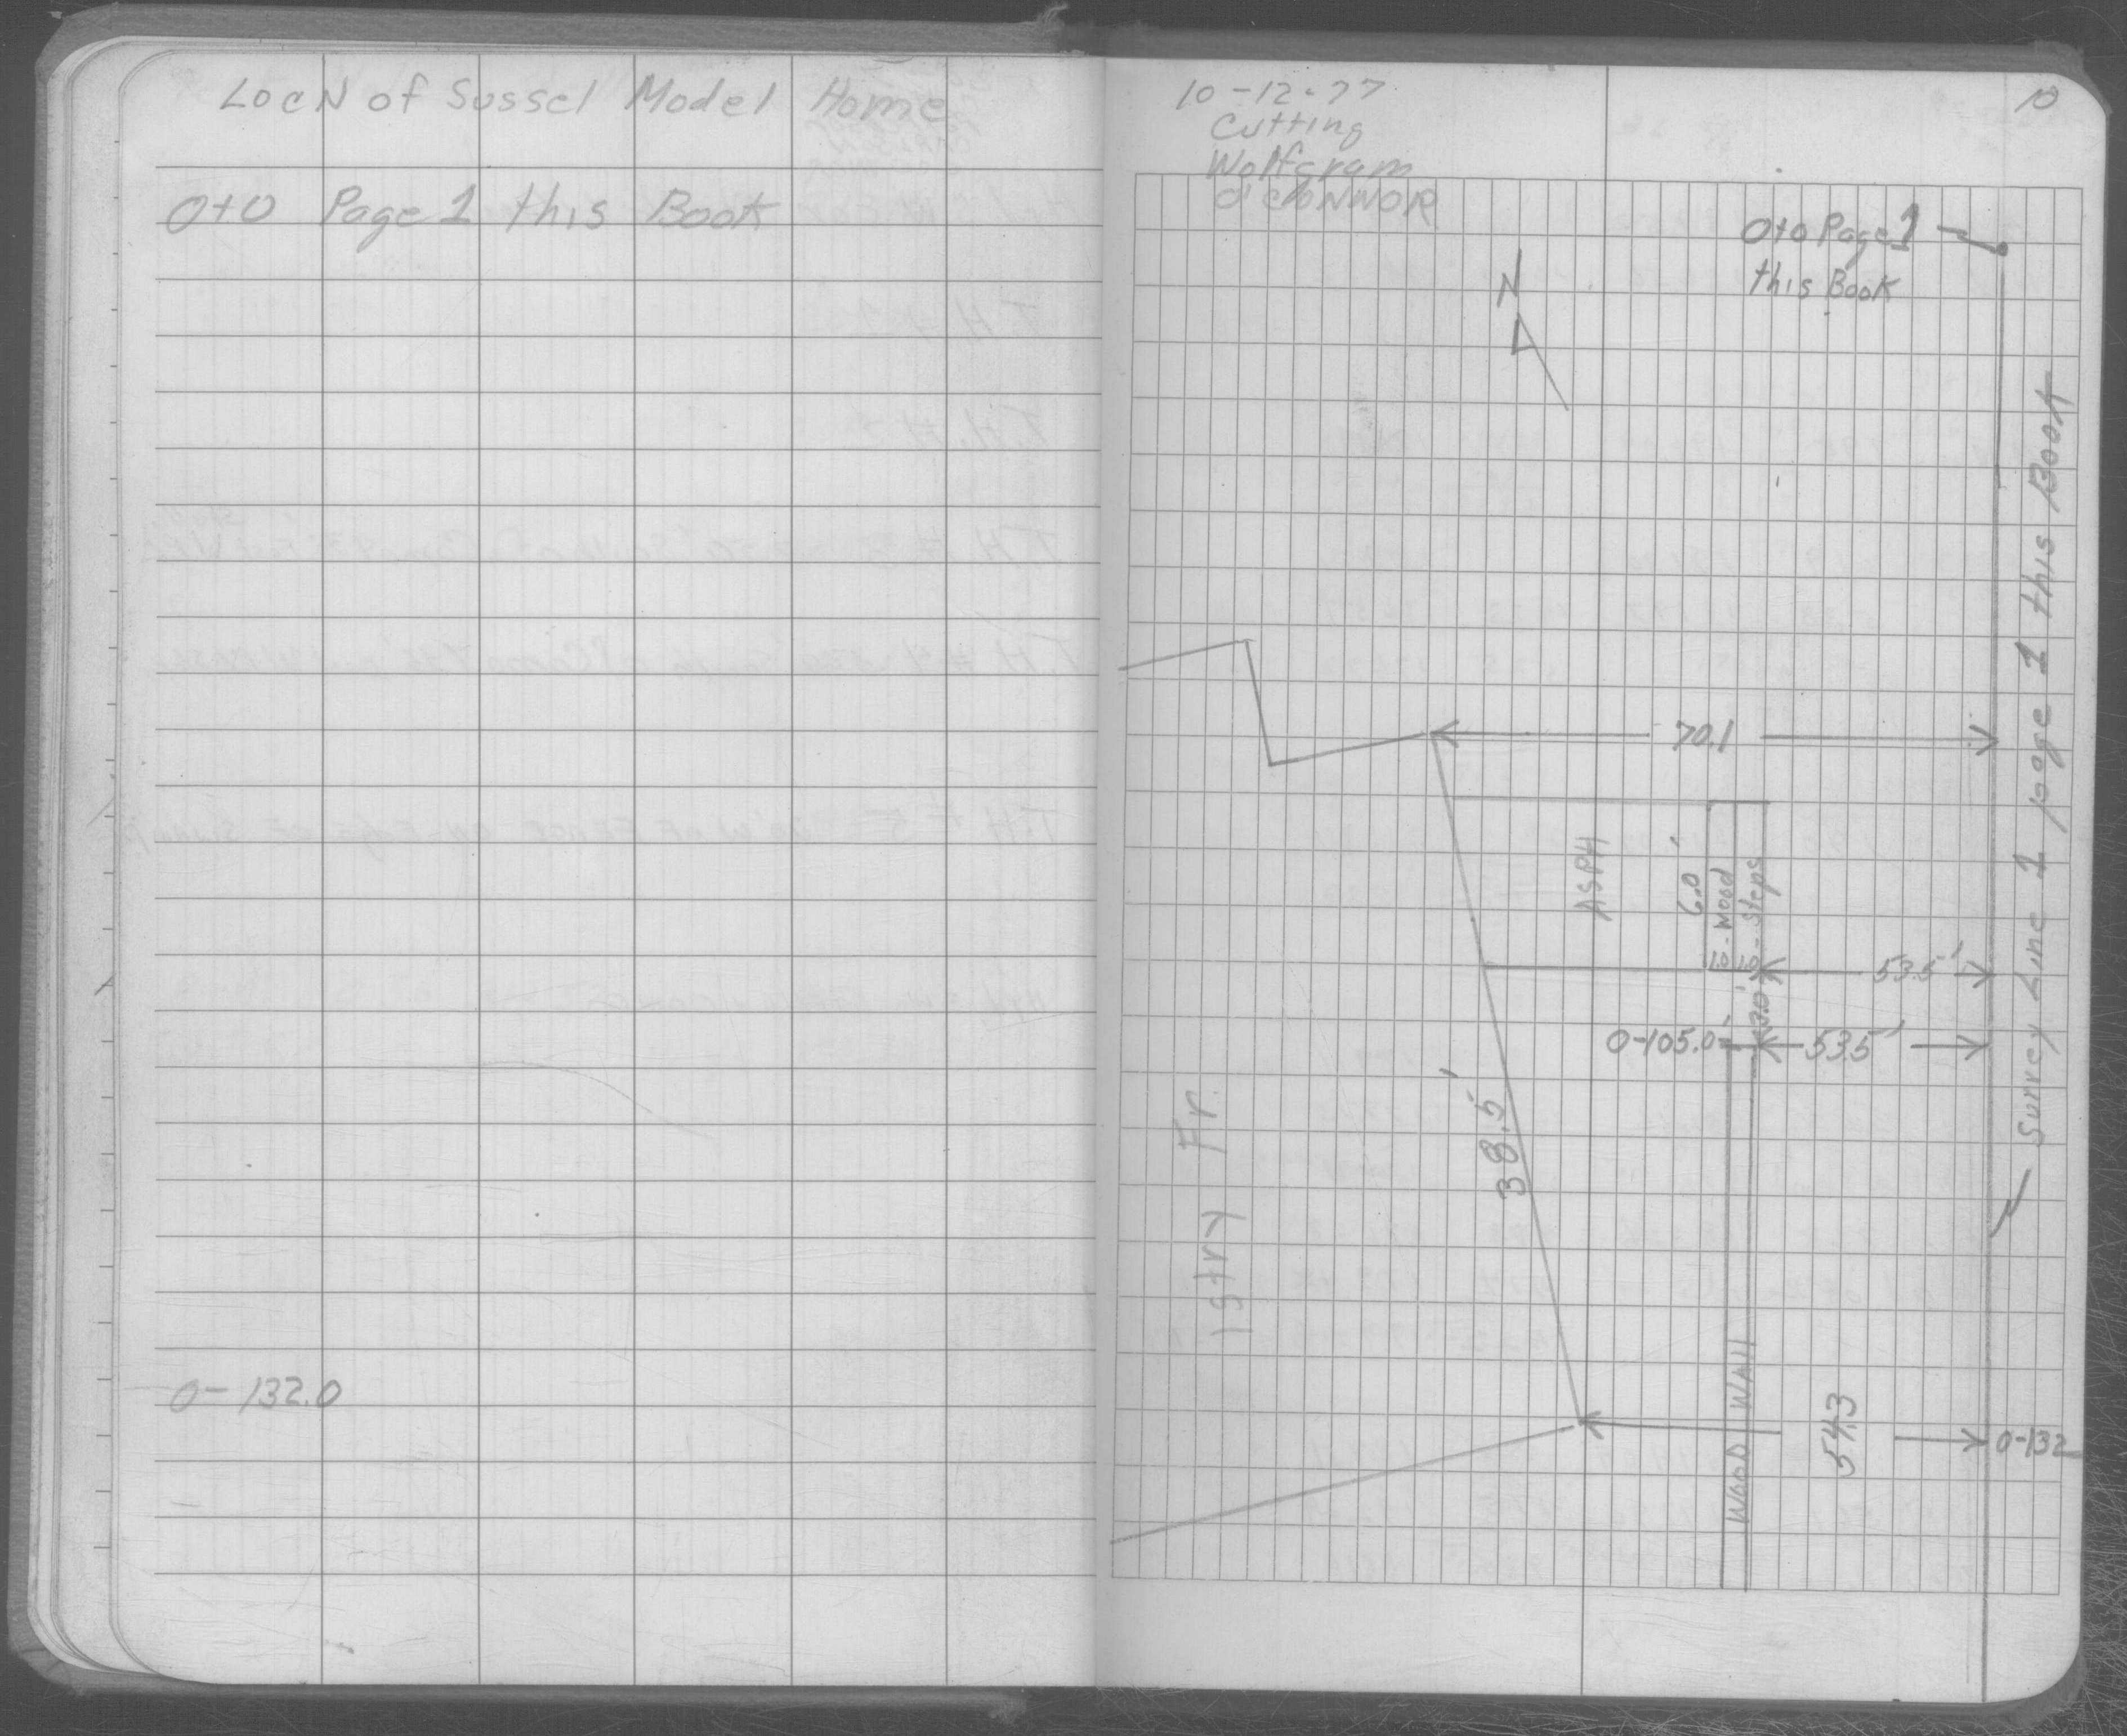 LocN of Sussel Model Home
0+0 Page 1 this Book
0- 132.0
10-12-77
Cutting
Wolfgram
O'CONNOR
10
0+0 Page 1
this Book
N
70.1
ASPH
6.0'
1.0 - Wood
1.0 - Steps
53.5'
3.0'
0-105.0'
53.5'
38.5'
1stry Fr.
Wood Wall
54.3
0-132
Survey Line 1 page 1 this Book